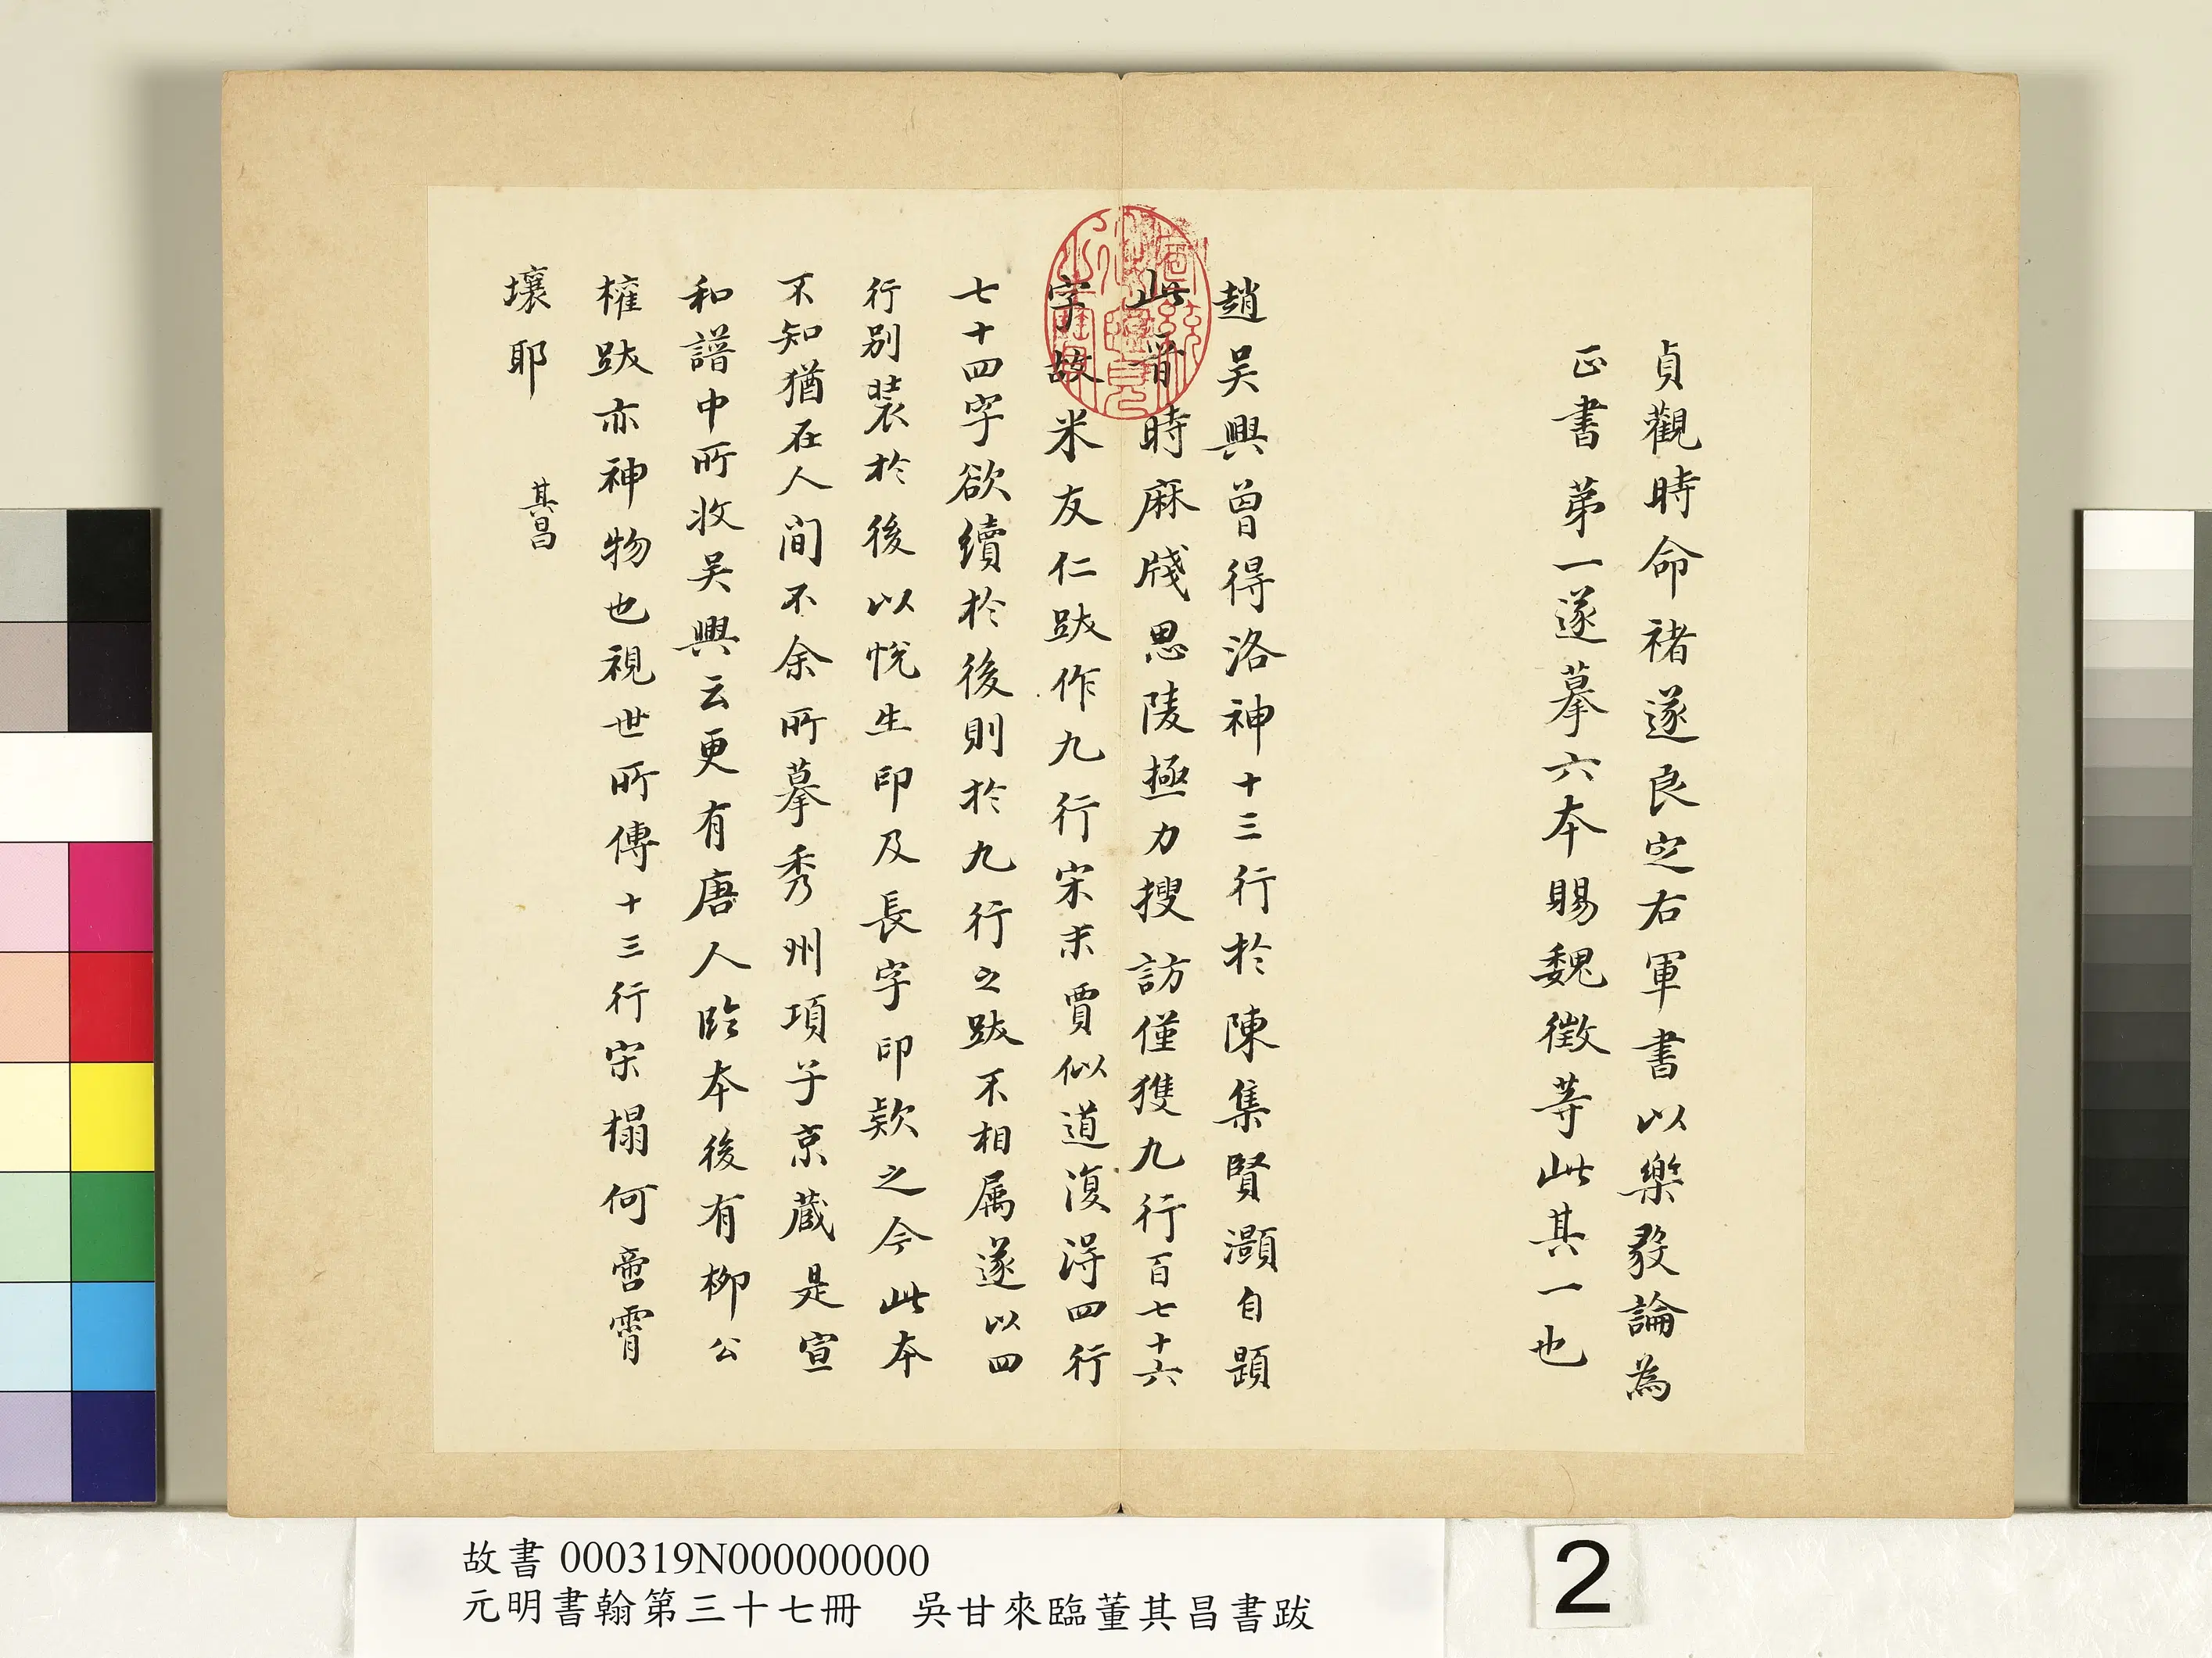 貞觀時命褚遂良定右軍書以樂毅論為
正書第一遂摹六本賜魏徵等此其一也
趙吳興曾得洛神十三行於陳集賢灝自題
此晉時麻牋思陵極力搜訪僅獲九行百七十六
字故米友仁跋作九行宋末賈似道復得四行
七十四字欲續於後則於九行之跋不相属遂以四
行別裝於後以悅生印及長字印款之今此本
不知猶在人间不余所摹秀州項子京藏是宣
和譜中所收吳興云更有唐人臨本後有柳公
權跋亦神物也視世所傳十三行宋榻何啻霄
壤耶
其昌
故書 000319N000000000
元明書翰第三十七冊 吳甘來臨董其昌書跋
2